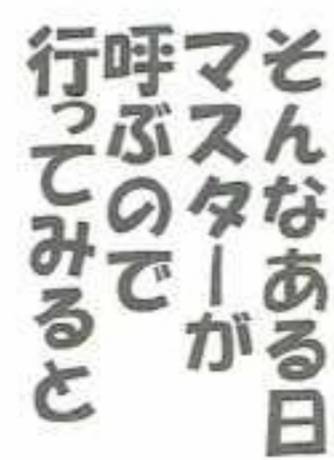 そんなある日
マスターが
呼ぶので
行ってみると